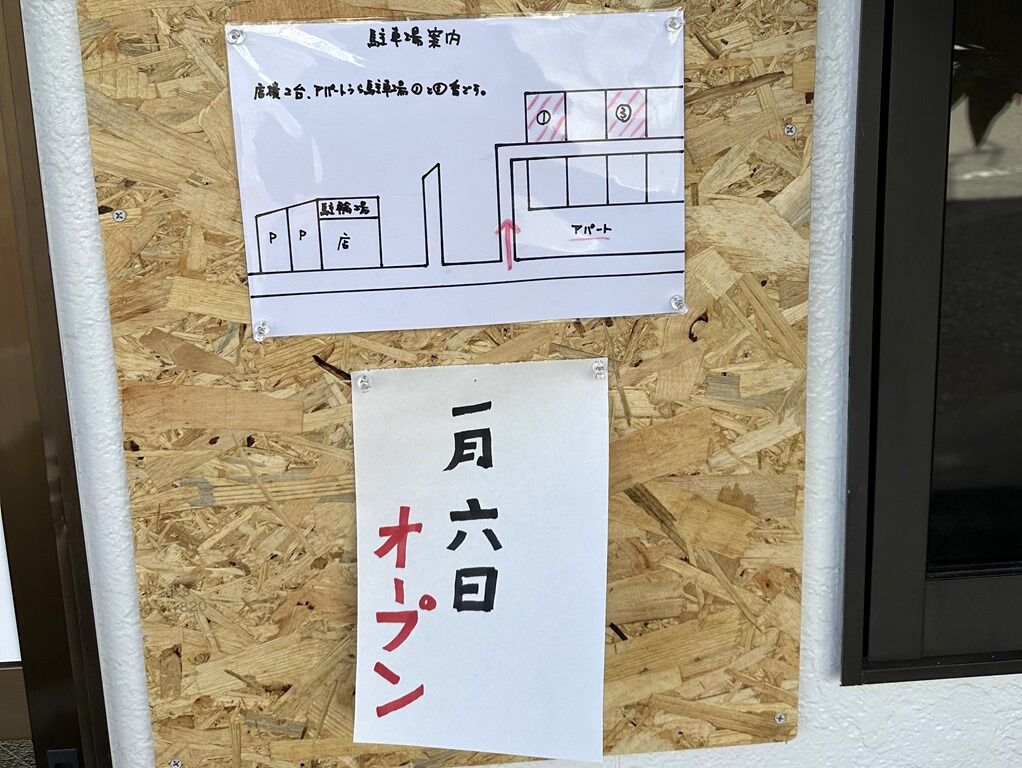 駐車場案内
店横2台、アパートうら駐車場①と③番です。
① ③
駐輪場
P P 店
アパート
一月六日
オープン